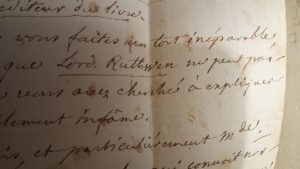 éditeur du livre.
vous faites un tort irréparable
que Lord Ruthwen ne peut pas
vous avez cherché à expliquer
infâme.
et particulièrement M. de
connoit